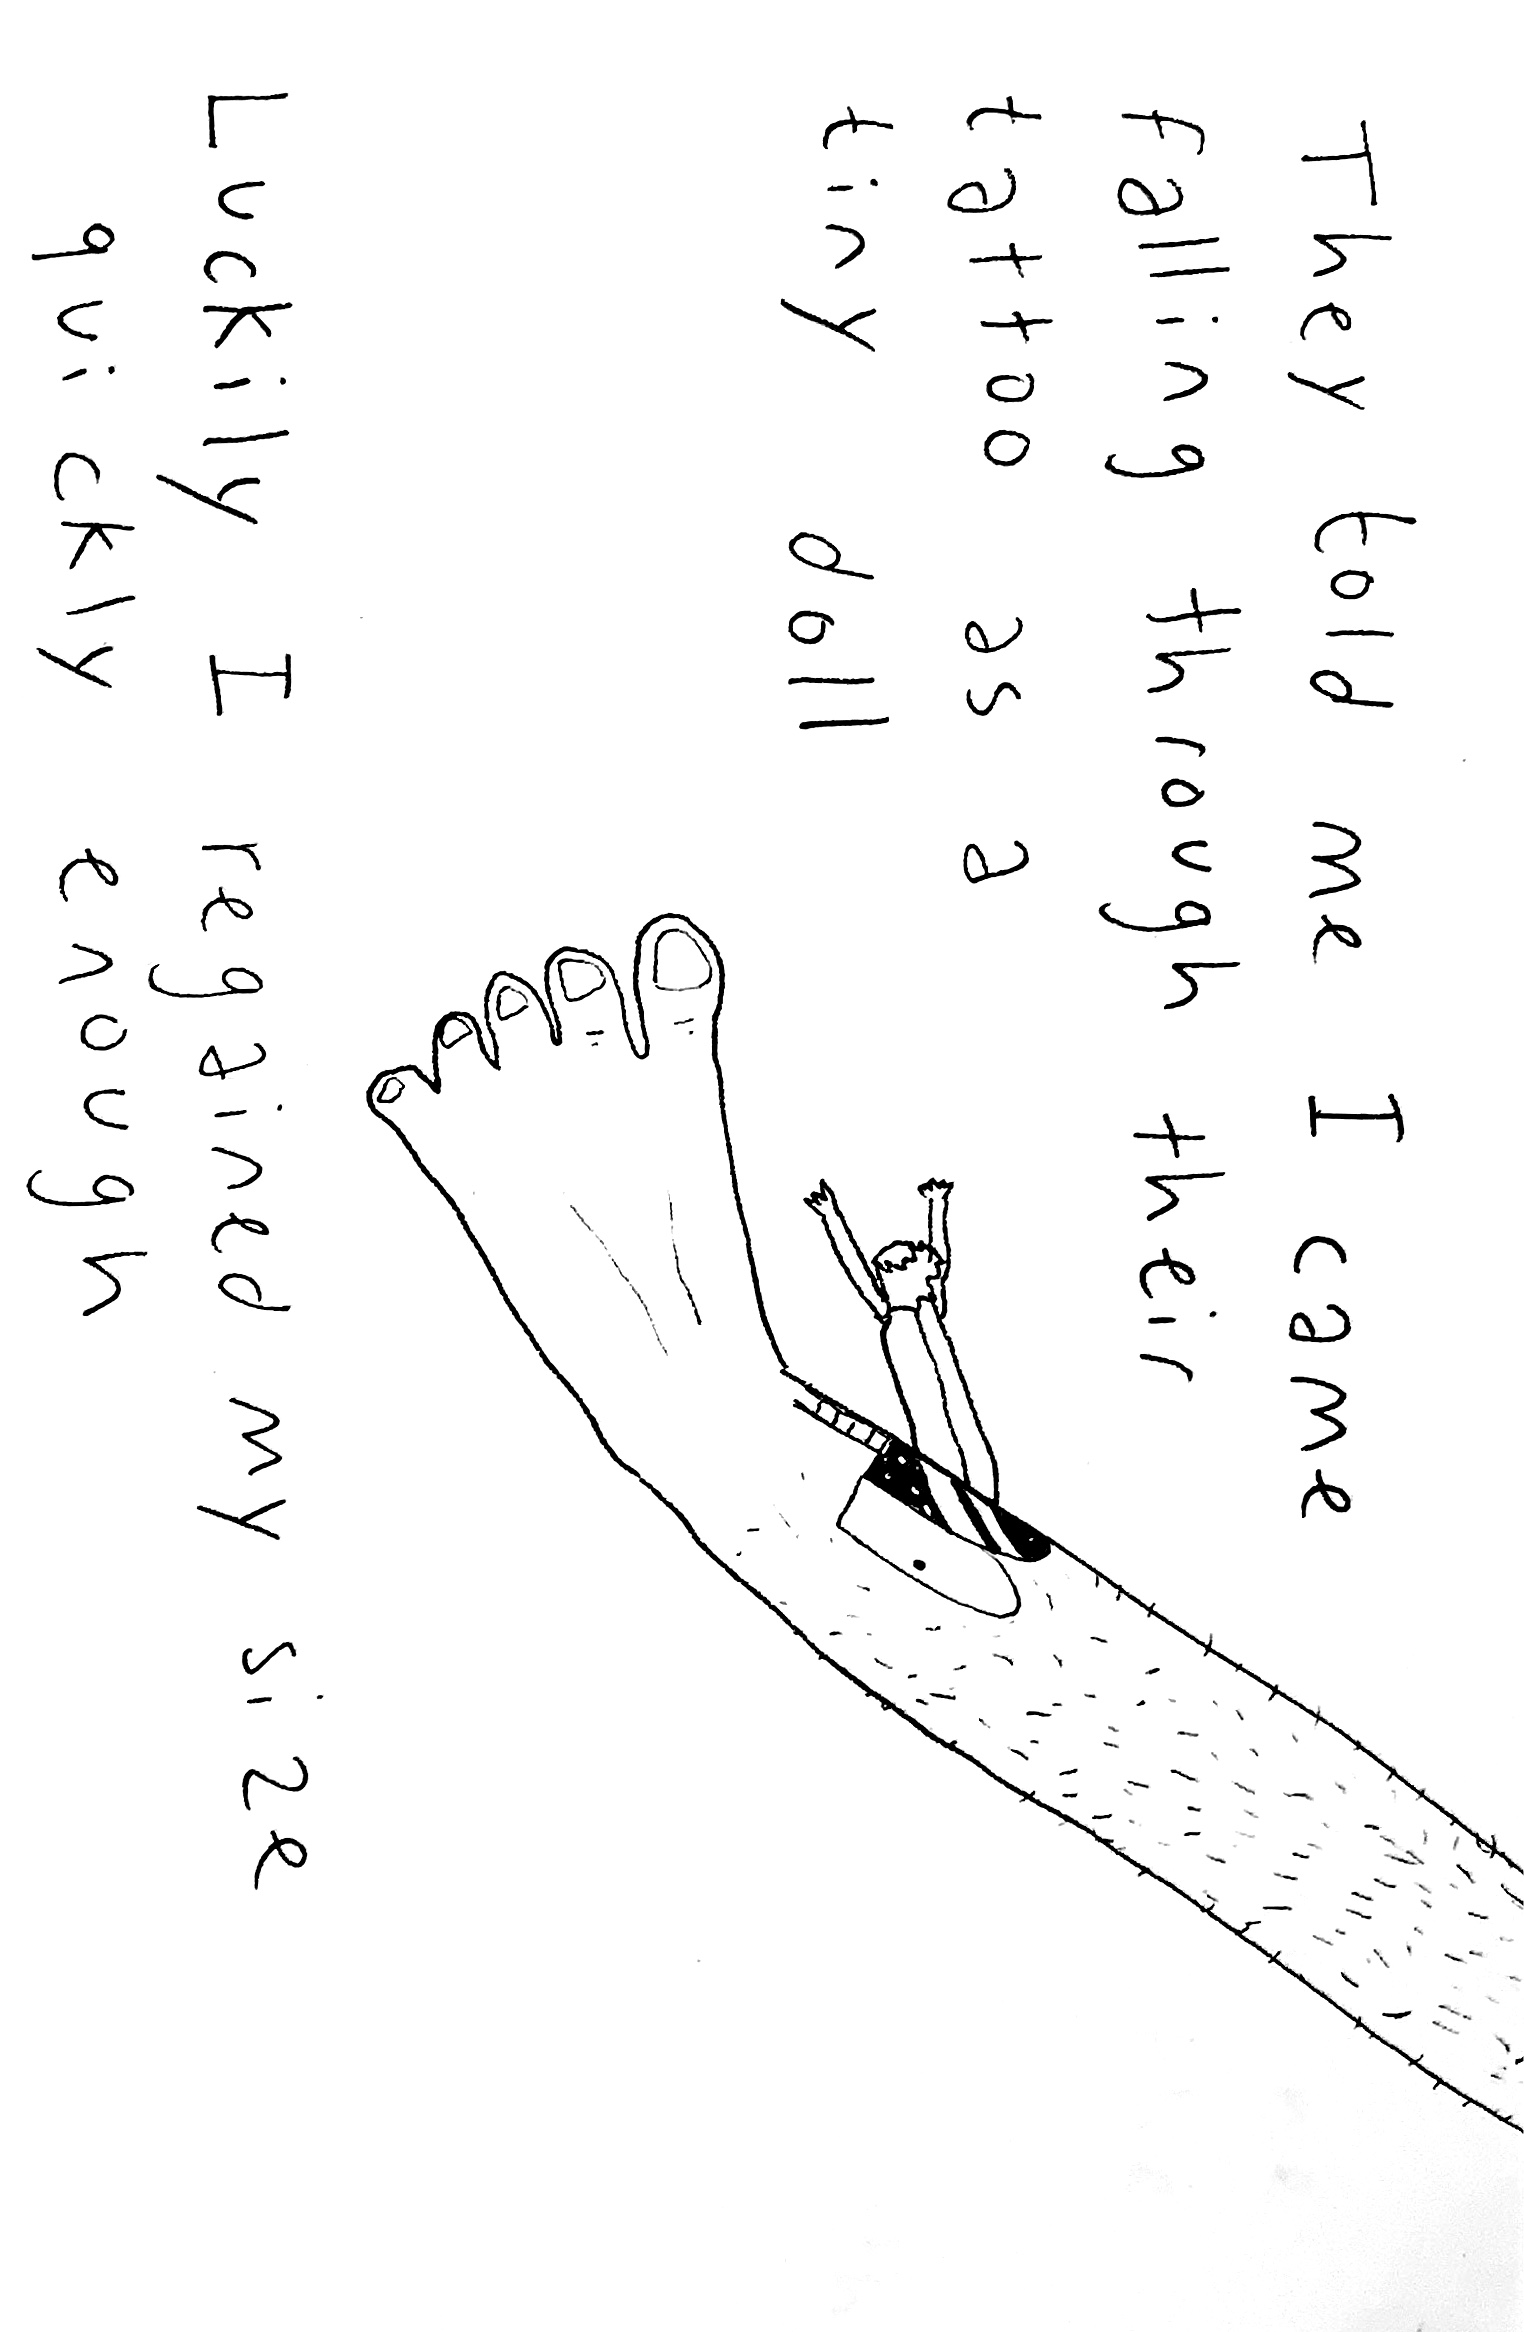 They told me I came
falling through their
tattoo as a
tiny doll
Luckily I regained my size
quickly enough